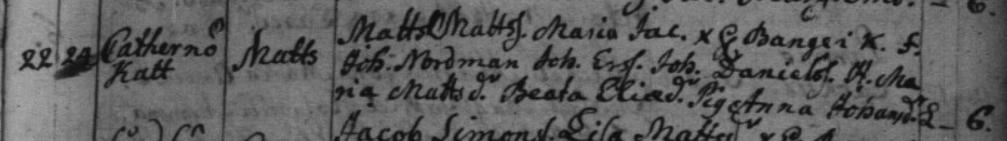 22 24 Cathernö Matts Matts Mattss. Maria Jac. x E Bangei K. F.
Katt Joh. Nordman Joh. Ersf. Joh. Danielsf. H. Ma
ria Mattsdr. Beata Eliædr. Pig Anna Johansdr. L - 6.
Jacob Simons. Lisa Matts